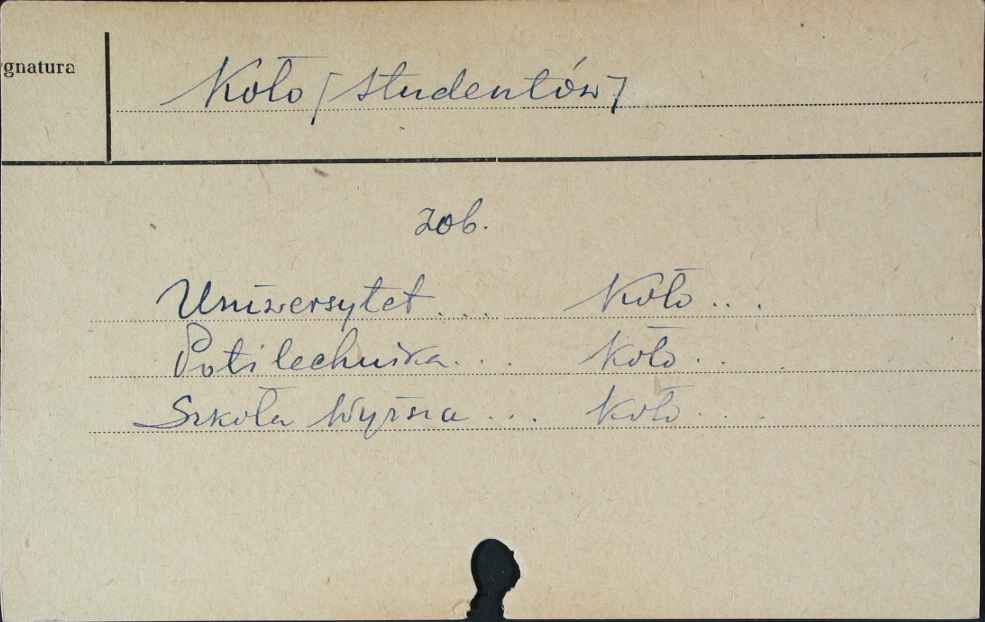 ygnatura
Koło [studentów]
zob.
Uniwersytet ... Koło ...
Politechnika ... Koło ...
Szkoła Wyższa ... Koło ...